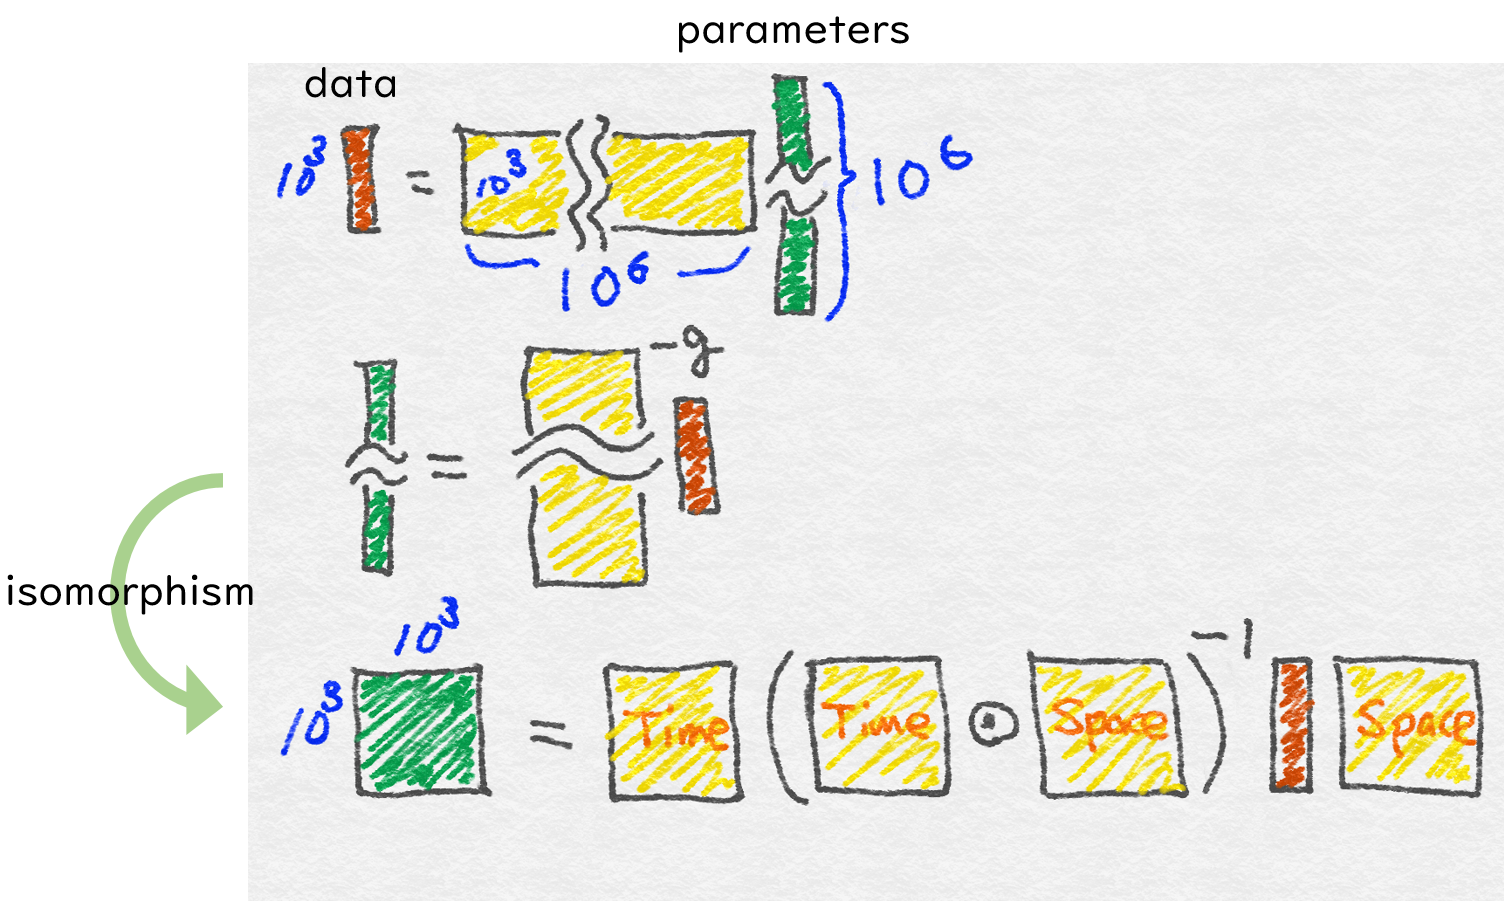 parameters
data
10³ = 10³ 10⁶
10⁶
= -g
isomorphism
10³
10³ = Time ( Time ⊙ Space )⁻¹ Space